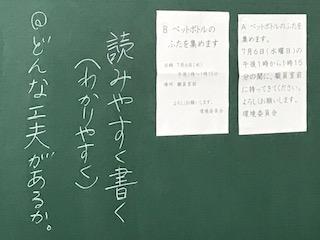 読みやすく書く
(わかりやすく)
◎どんな工夫があるか。
A ペットボトルのふたを
集めます。
7月6日(水曜日)の
午後1時から1時15
分の間に、職員室前
に持ってきてください。
よろしくお願いします。
環境委員会
B ペットボトルの
ふたを集めます
日時 7月6日(水)
午後1時〜1時15分
場所 職員室前
よろしくお願いします。
環境委員会